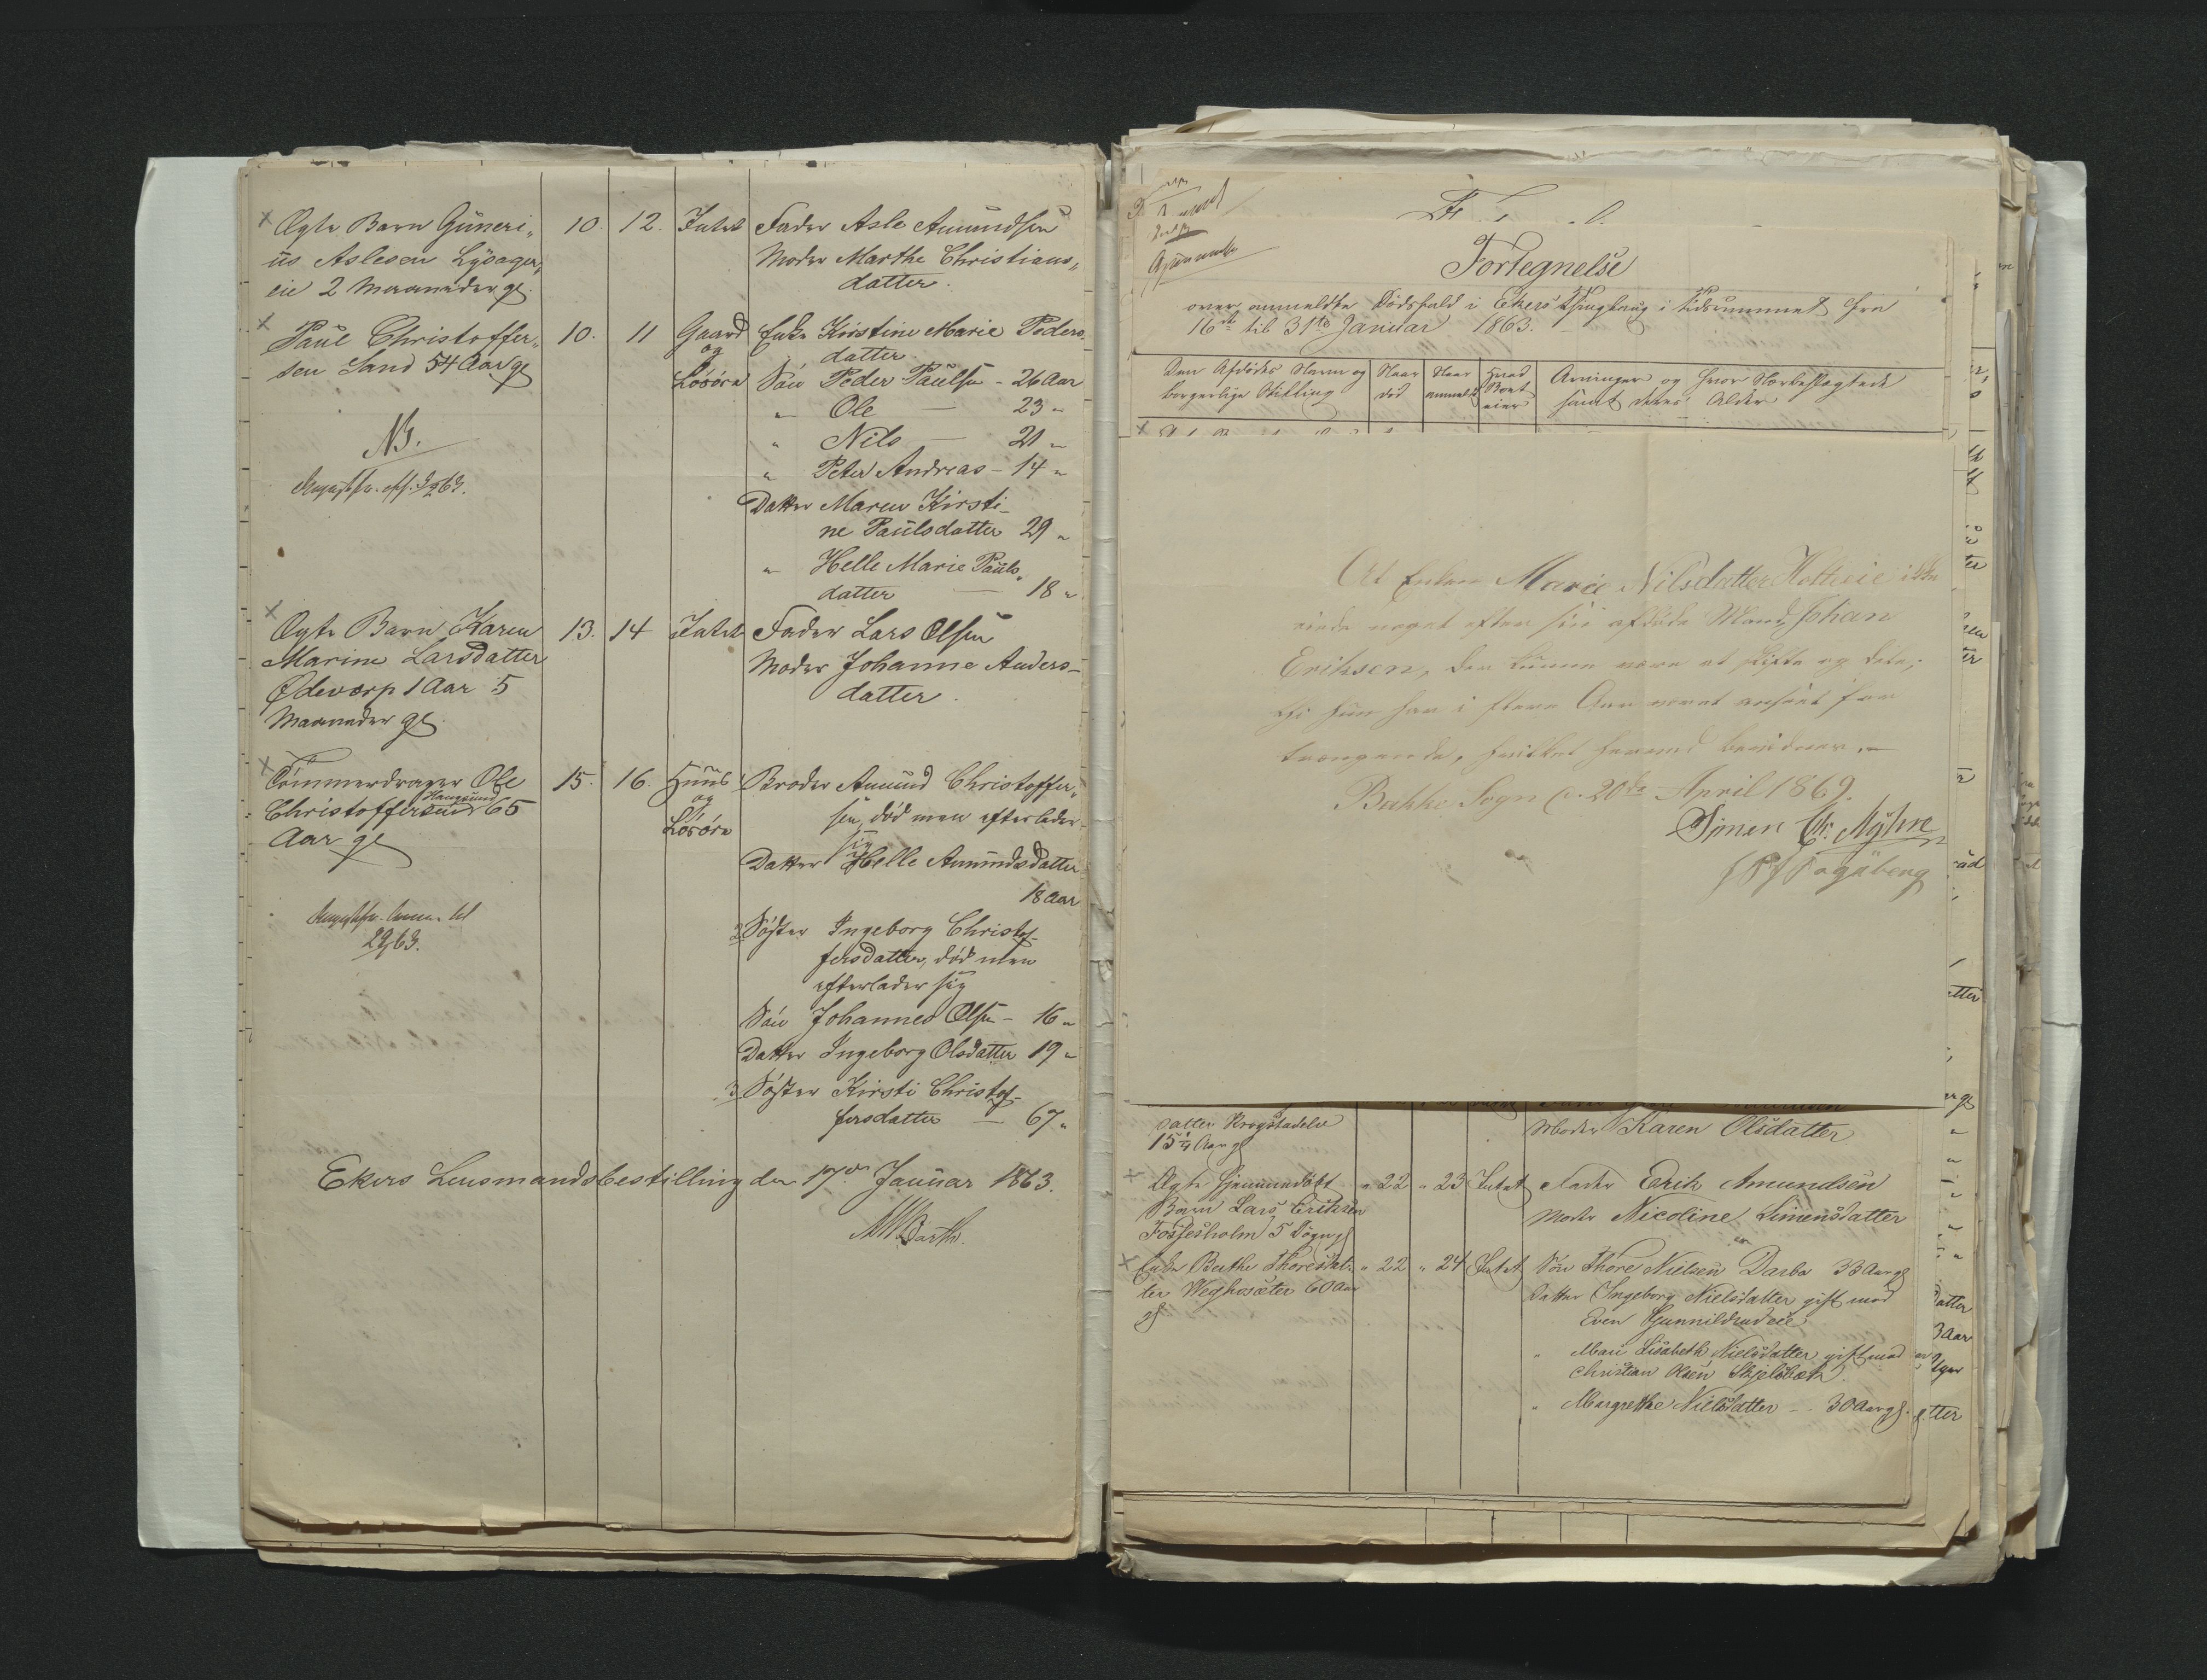 Ægte Barn Guneri„ 10. 12. Intet Fader Asle Amundsen
us Aslesen Lysager„ Moder Marthe Christians„
eie 2 Maaneder gl. datter.
Paul Christoffer„ 10. 11 Gaard Enke Kirstine Marie Peders„
sen Sand 54 Aar gl og datter
Løsøre Søn Peder Paulsen - 26 Aar
„ Ole — 23 „
NB. „ Nils — 21 „
„ Peter Andreas - 14 „
Datter Maren Kirsti-
ne Paulsdatter 29 „
„ Helle Marie Pauls„
datter — 18 „
Ægte Barn Karen 13. 14 Intet Fader Lars Olsen
Marine Larsdatter Moder Johanne Anders-
Ødevarp 1 Aar 5 datter.
Maaneder gl.
Tømmerdrager Ole 15. 16. Huus Broder Amund Christoffer„
Haugsund
Christoffersen 65 og sen, død men efterlader
Aar gl Løsøre sig
Datter Helle Amundsdatter
18 Aar
2 Søster Ingeborg Christof-
fersdatter, død men
29/63. efterlader sig
Søn Johannes Olsen - 16 „
Datter Ingeborg Olsdatter 19 „
3 Søster Kirsti Christof-
fersdatter — 67 „
Ekers Lensmandsbestilling den 17de Januar 1863.
Barth.
Fortegnelse
over anmeldte Dødsfald i Ekers Thinglaug i Tidsrummet fra
16de til 31te Januar 1863.
Den Afdødes Navn og Naar Naar Hvad Arvinger og hvor Nærbeslægtede
borgerlige Stilling død anmeldt Boet eier samt deres Alder
At Enken Marie Nilsdatter Hotteeie ikke
eiede noget efter sin afdøde Mand Johan
Eriksen, der kunne være at skifte og dele;
thi hun har i flere Aar været anseet for
trængende, hvilket herved bevidnes.
Bakke Sogn d. 20de April 1869.
Simen Chr. Myhre
datter Krogstadelve Moder Karen Olsdatter
15 1/4 Aar gl
Ægte Hjemmedøbt „ 22 „ 23 Intet Fader Erik Amundsen
Barn Lars Eriksen Moder Nicoline Simensdatter
Fossesholm 5 Døgn gl
Enke Berthe Thoresdat- „ 22 „ 24 Intet Søn Thore Nielsen Darbo 33 Aar gl
ter Weghosæter 60 Aar Datter Ingeborg Nielsdatter gift med
gl Even Gunnildrudeie
„ Mari Lisabeth Nielsdatter gift med
Christian Olsen Skjelsbæk
„ Margrethe Nielsdatter — 30 Aar gl.